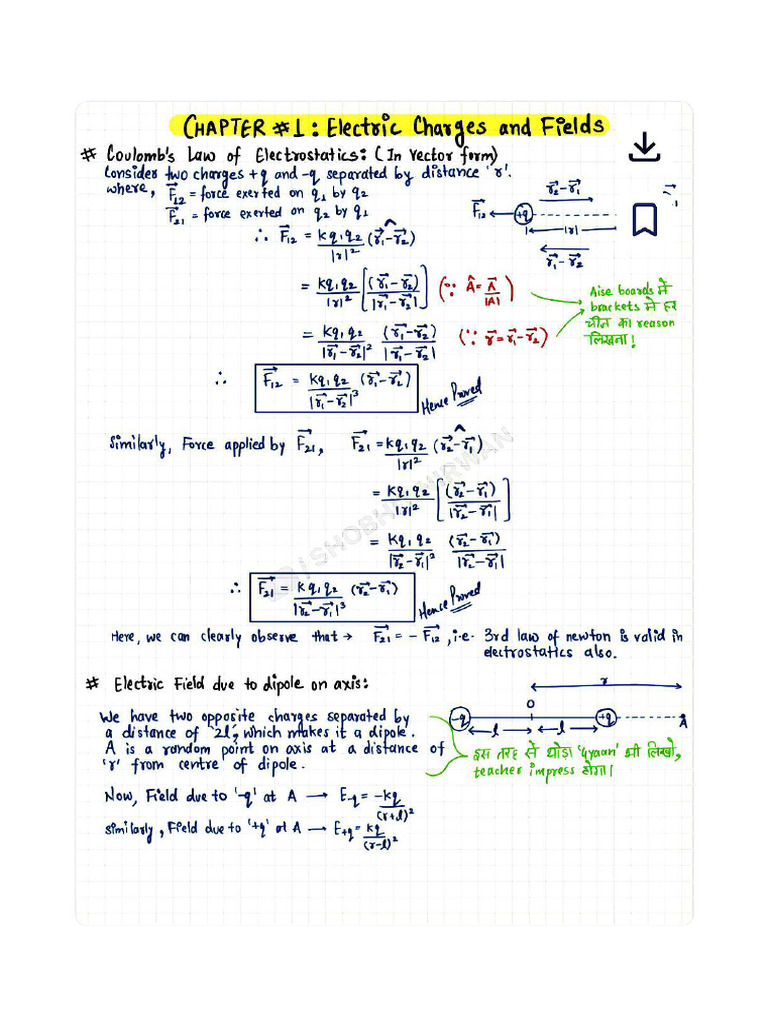 CHAPTER #1: Electric Charges and Fields
# Coulomb's Law of Electrostatics: (In vector form)
Consider two charges +q and -q separated by distance 'r'.
where, F⃗₁₂ = force exerted on q₁ by q₂
F⃗₂₁ = force exerted on q₂ by q₁
r⃗₂-r⃗₁
F⃗₁₂ +q
|r|
r⃗₁-r⃗₂
∴ F⃗₁₂ = kq₁q₂/|r|² (r⃗₁-r⃗₂)^
= kq₁q₂/|r|² [(r⃗₁-r⃗₂)/|r⃗₁-r⃗₂|] (∵ Â = A⃗/|A|)
Aise boards में
brackets में हर
चीज का reason
लिखना!
= kq₁q₂/|r⃗₁-r⃗₂|² (r⃗₁-r⃗₂)/|r⃗₁-r⃗₂| (∵ r⃗=r⃗₁-r⃗₂)
∴ F⃗₁₂ = kq₁q₂/|r⃗₁-r⃗₂|³ (r⃗₁-r⃗₂) Hence Proved
Similarly, Force applied by F⃗₂₁, F⃗₂₁ = kq₁q₂/|r|² (r⃗₂-r⃗₁)^
= kq₁q₂/|r|² [(r⃗₂-r⃗₁)/|r⃗₂-r⃗₁|]
= kq₁q₂/|r⃗₂-r⃗₁|² (r⃗₂-r⃗₁)/|r⃗₂-r⃗₁|
∴ F⃗₂₁ = kq₁q₂/|r⃗₂-r⃗₁|³ (r⃗₂-r⃗₁) Hence Proved
SHOBHIT NIRWAN
Here, we can clearly observe that → F⃗₂₁ = - F⃗₁₂, i.e. 3rd law of newton is valid in
electrostatics also.
# Electric Field due to dipole on axis:
r
O
-q l l +q A
We have two opposite charges separated by
a distance of '2l', which makes it a dipole.
A is a random point on axis at a distance of
'r' from centre of dipole.
इस तरह से थोड़ा 'Gyaan' भी लिखो,
teacher impress होगा।
Now, Field due to '-q' at A → E-q = -kq/(r+l)²
similarly, Field due to '+q' at A → E+q = kq/(r-l)²